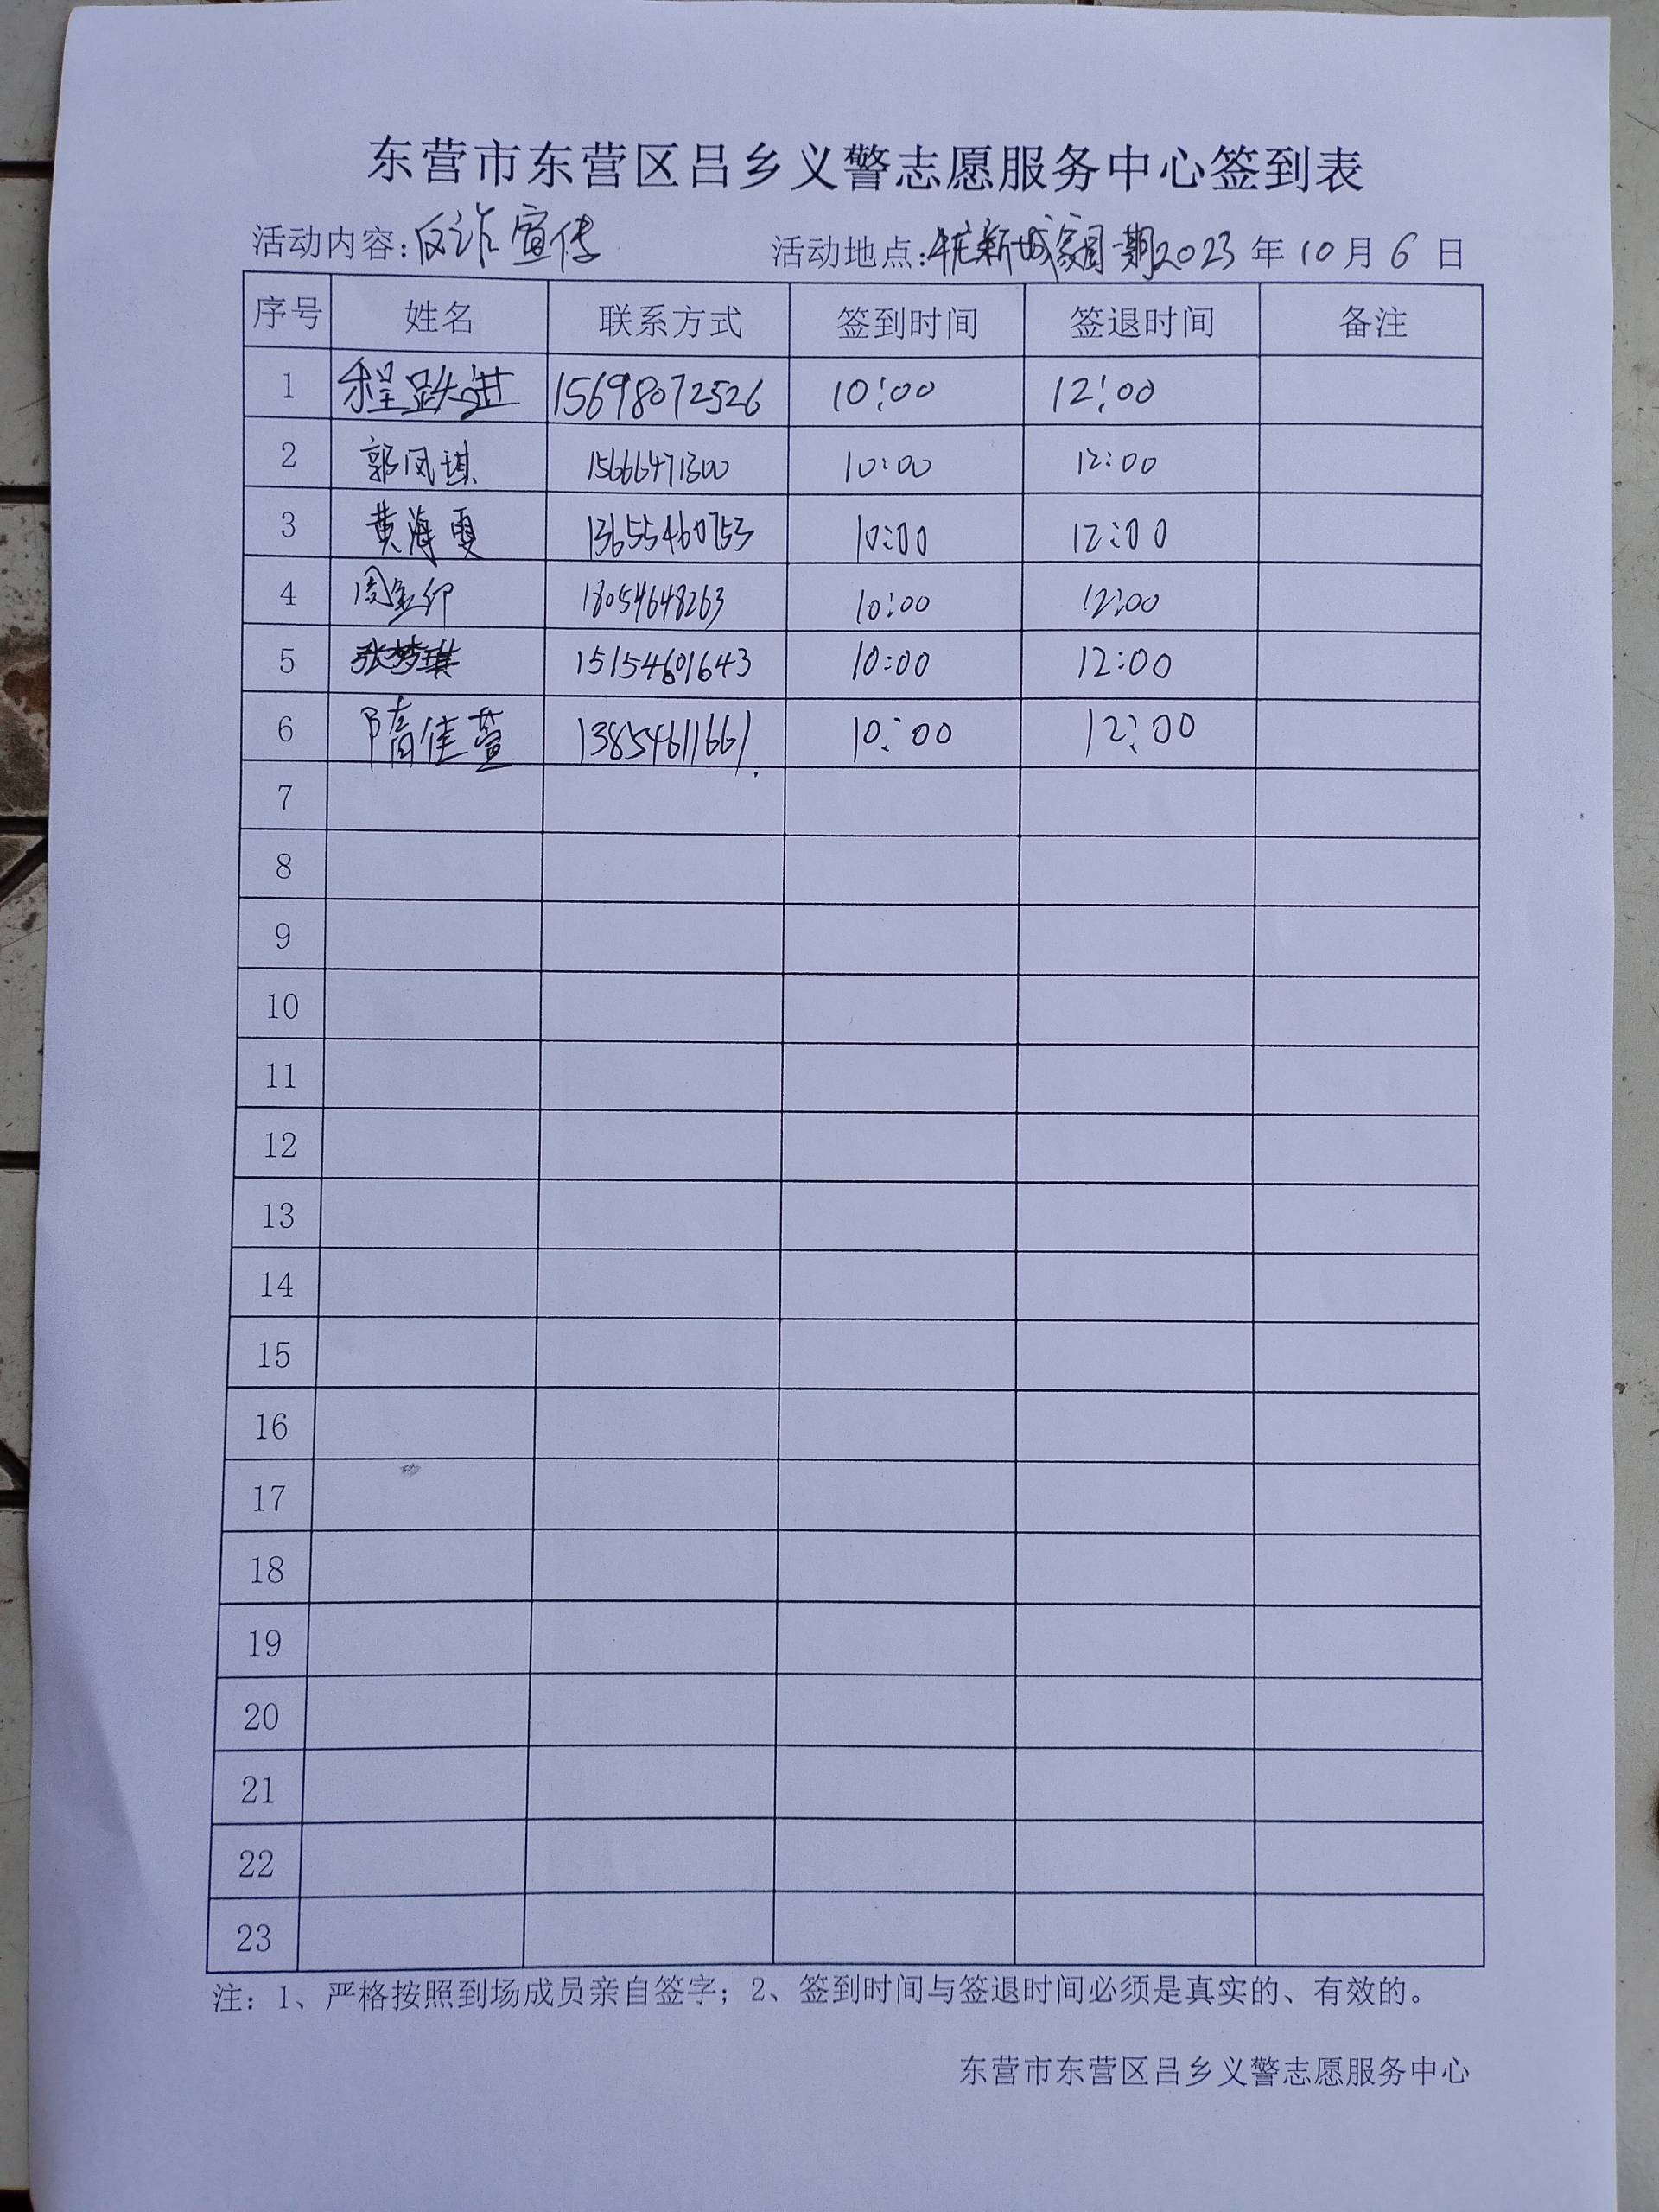 东营市东营区吕乡义警志愿服务中心签到表
活动内容:反诈宣传 活动地点:牛庄新城家园一期2023年10月6日
序号 姓名 联系方式 签到时间 签退时间 备注
1 程跃进 15698072526 10:00 12:00
2 郭凤琪 15666471300 10:00 12:00
3 黄海雯 13655460753 10:00 12:00
4 18054648263 10:00 12:00
5 张梦琪 15154601643 10:00 12:00
6 隋佳萱 13854611661 10:00 12:00
7
8
9
10
11
12
13
14
15
16
17
18
19
20
21
22
23
注：1、严格按照到场成员亲自签字；2、签到时间与签退时间必须是真实的、有效的。
东营市东营区吕乡义警志愿服务中心